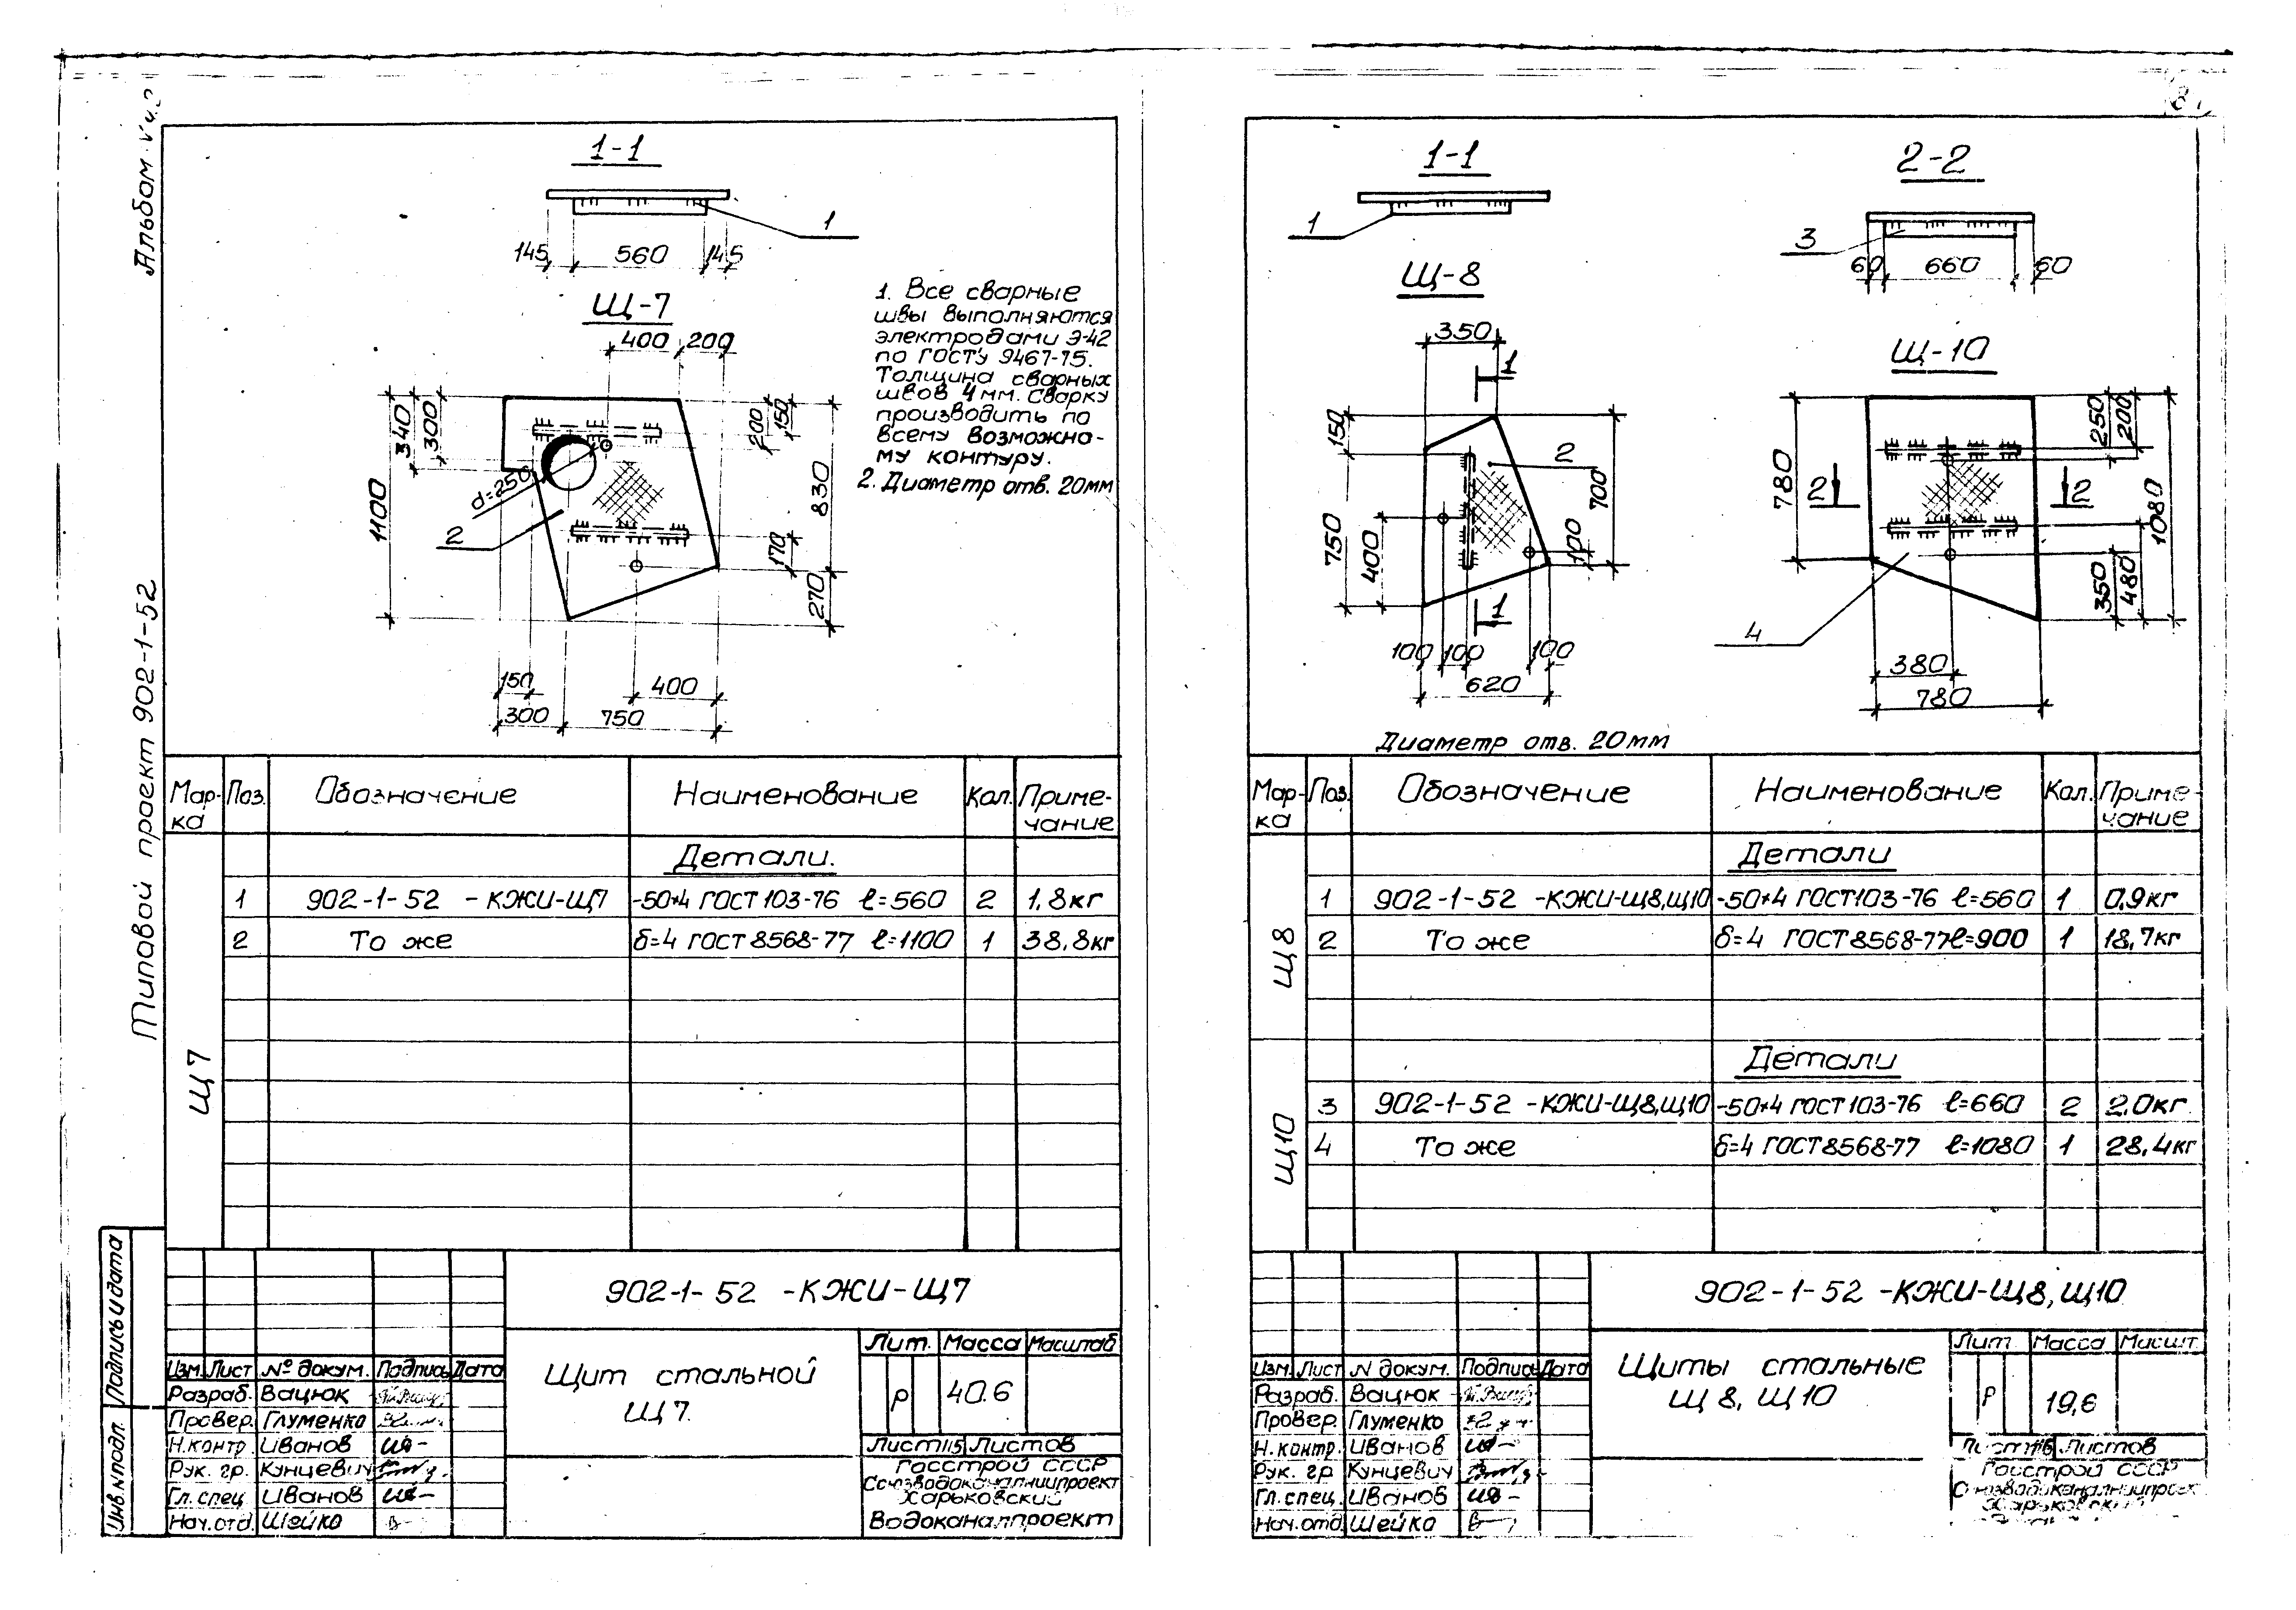 Альбом V ч.2
Типовой проект 902-1-52
Подпись и дата
Инв.№ подл.
1-1
1
145 560 145
Щ-7
400 200
340
300
1100
200
150
830
170
270
d=250
2
150
400
300 750
1. Все сварные
швы выполняются
электродами Э-42
по ГОСТУ 9467-75.
Толщина сварных
швов 4 мм. Сварку
производить по
всему возможно-
му контуру.
2. Диаметр отв. 20мм
Мар-
ка
Поз. Обозначение Наименование Кол. Приме-
чание
Детали.
1 902-1-52 -КЖИ-Щ7 -50×4 ГОСТ 103-76 ℓ=560 2 1,8кг
2 То же δ=4 ГОСТ 8568-77 ℓ=1100 1 38,8кг
Щ7
902-1-52 -КЖИ-Щ7
Щит стальной
Щ7.
Лит. Масса Масштаб
Р 40.6
Лист 115 Листов
Госстрой СССР
Союзводоканалниипроект
Харьковский
Водоканалпроект
Изм. Лист № докум. Подпись Дата
Разраб. Вацюк
Провер. Глуменко
Н.контр. Иванов
Рук. гр. Кунцевич
Гл.спец Иванов
Нач.отд. Шейко
1-1
1
Щ-8
350
1
150
750
400
2
700
100
1
100 100 100
620
2-2
3
60 660 60
Щ-10
780
2 2
250
200
1080
350
480
4
380
780
Диаметр отв. 20мм
Мар-
ка
Поз. Обозначение Наименование Кол. Приме-
чание
Детали
1 902-1-52 -КЖИ-Щ8,Щ10 -50×4 ГОСТ 103-76 ℓ=560 1 0,9кг
2 То же δ=4 ГОСТ 8568-77 ℓ=900 1 18,7кг
Щ8
Детали
3 902-1-52 -КЖИ-Щ8,Щ10 -50×4 ГОСТ 103-76 ℓ=660 2 2,0кг
4 То же δ=4 ГОСТ 8568-77 ℓ=1080 1 28,4кг
Щ10
902-1-52 -КЖИ-Щ8, Щ10
Щиты стальные
Щ8, Щ10
Лит. Масса Масшт.
Р 19,6
Лист 116 Листов
Госстрой СССР
Союзводоканалниипроект
Харьковский
Изм. Лист N докум. Подпись Дата
Разраб. Вацюк
Провер. Глуменко
Н.контр. Иванов
Рук. гр Кунцевич
Гл.спец. Иванов
Нач.отд Шейко